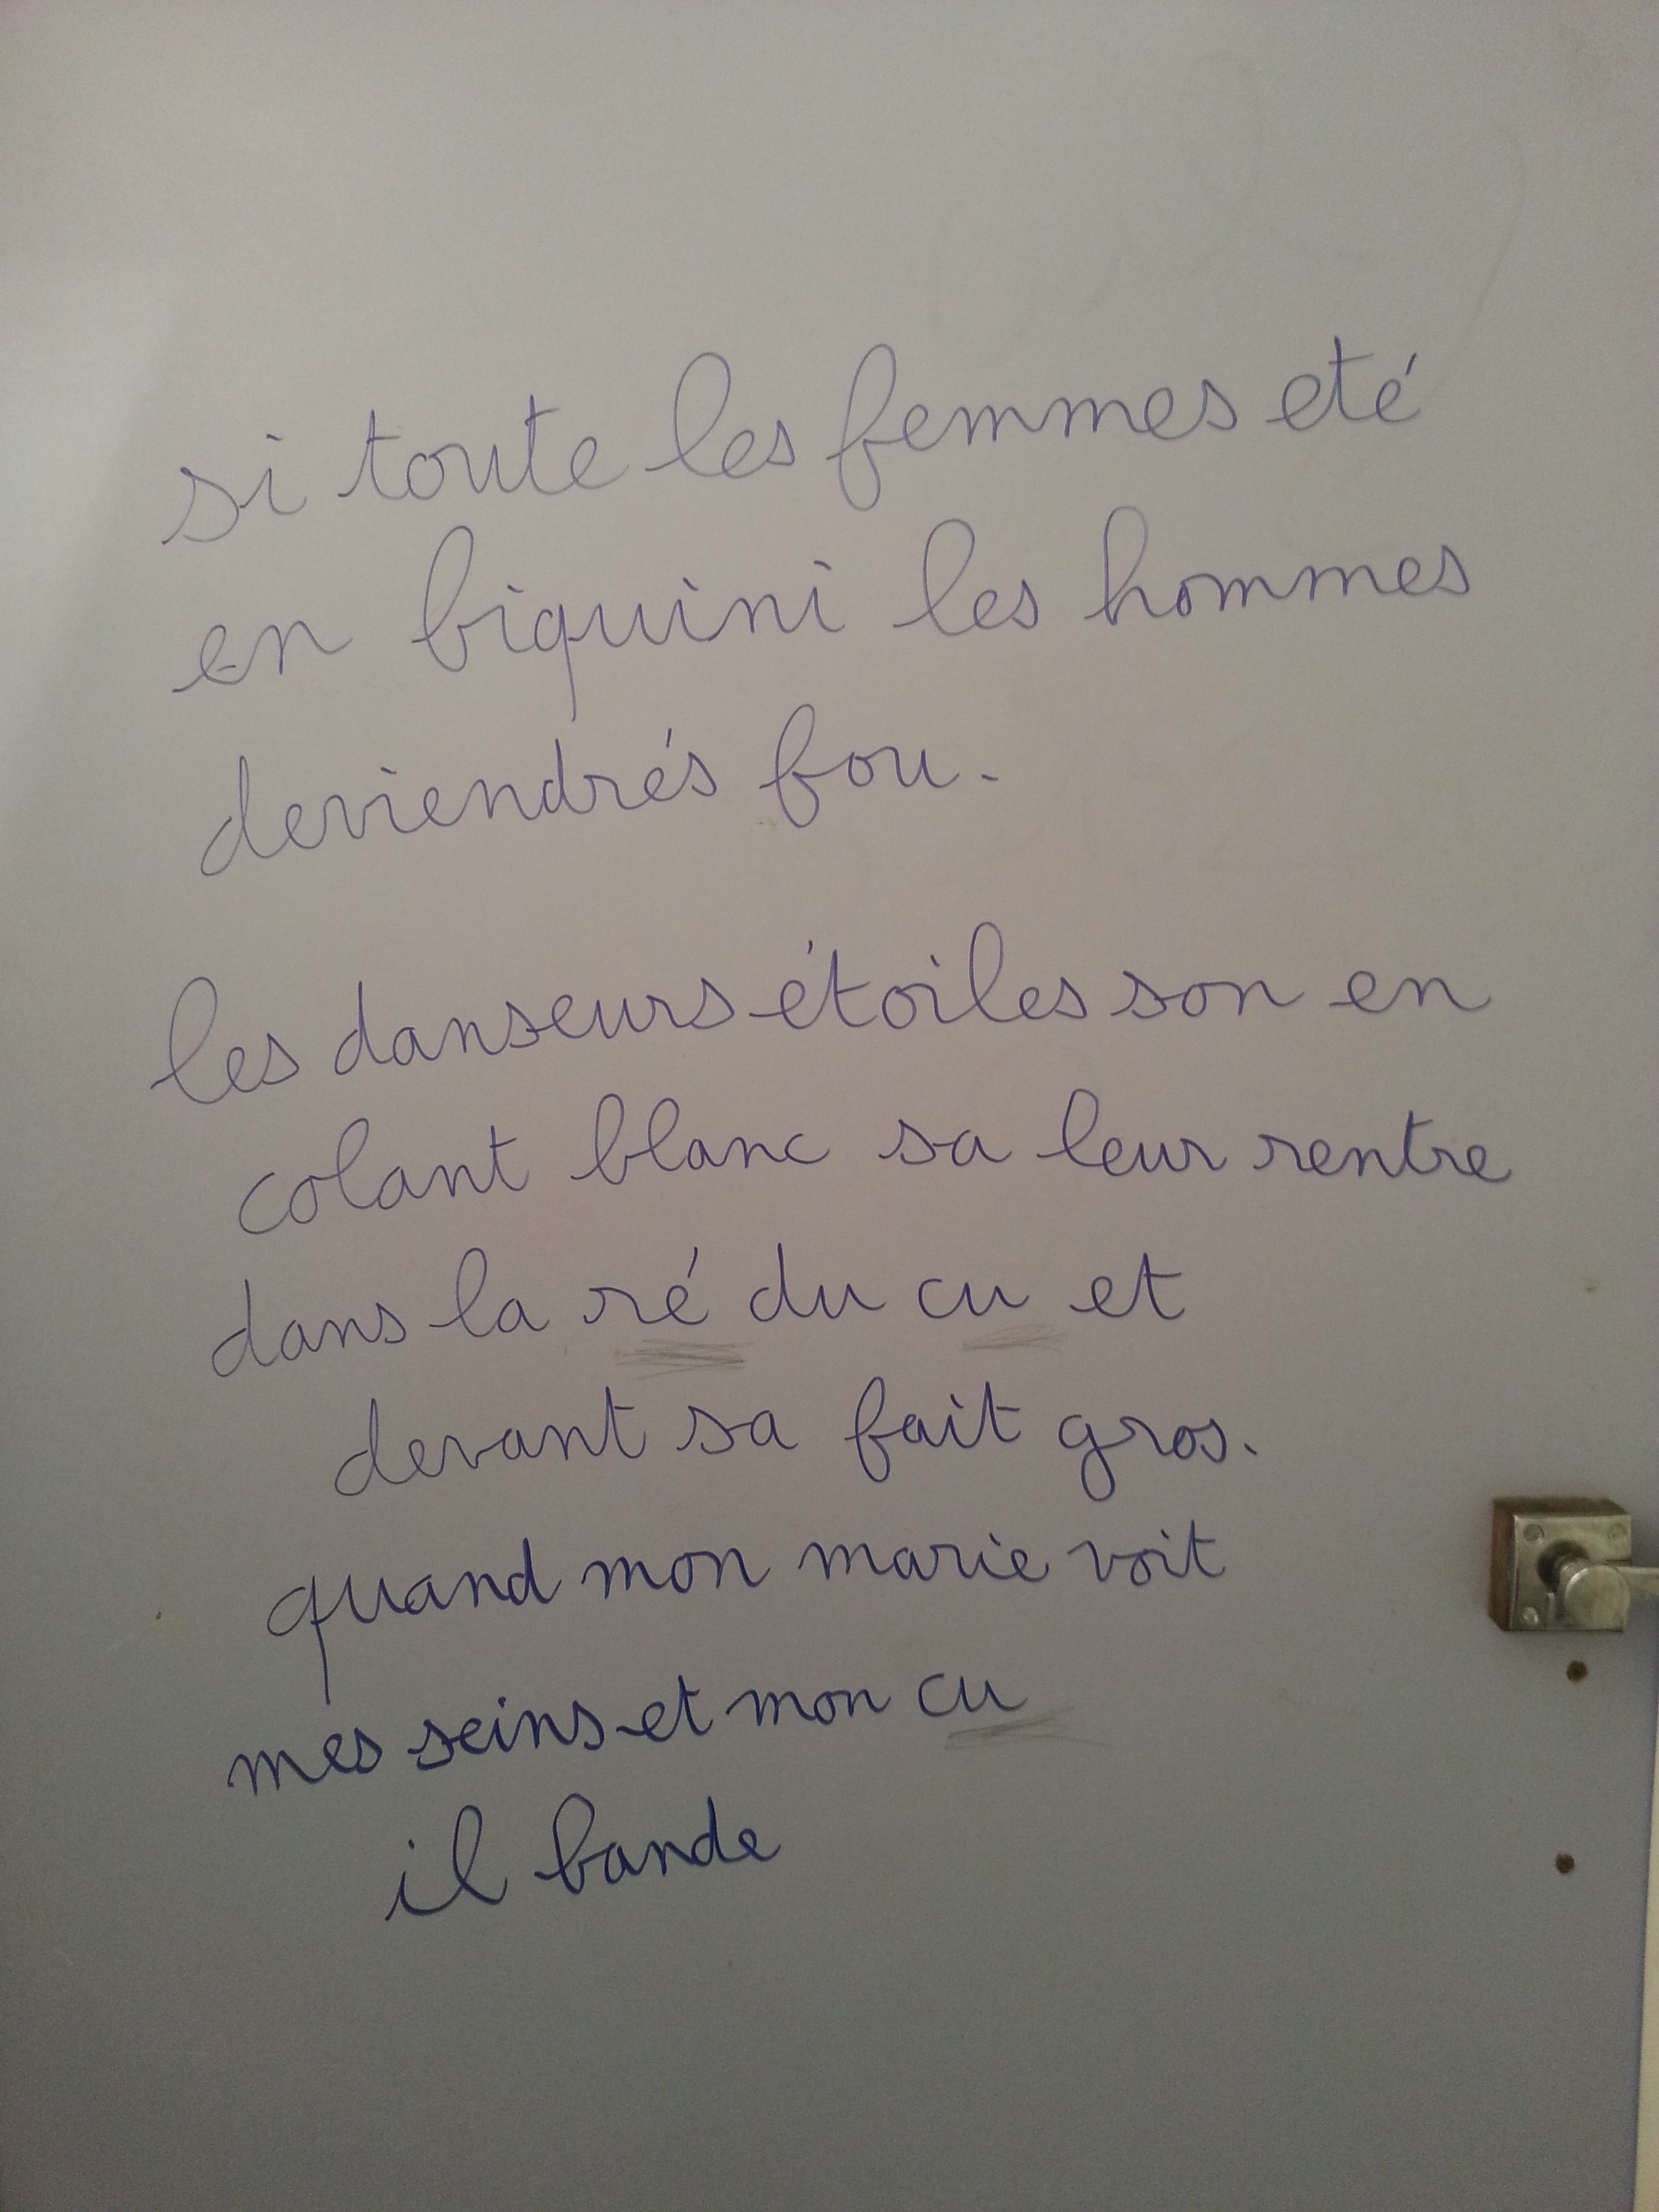 si toute les femmes eté
en biquini les hommes
deviendrés fou.
les danseurs étoiles son en
colant blanc sa leur rentre
dans la ré du cu et
devant sa fait gros.
quand mon marie voit
mes seins et mon cu
il bande